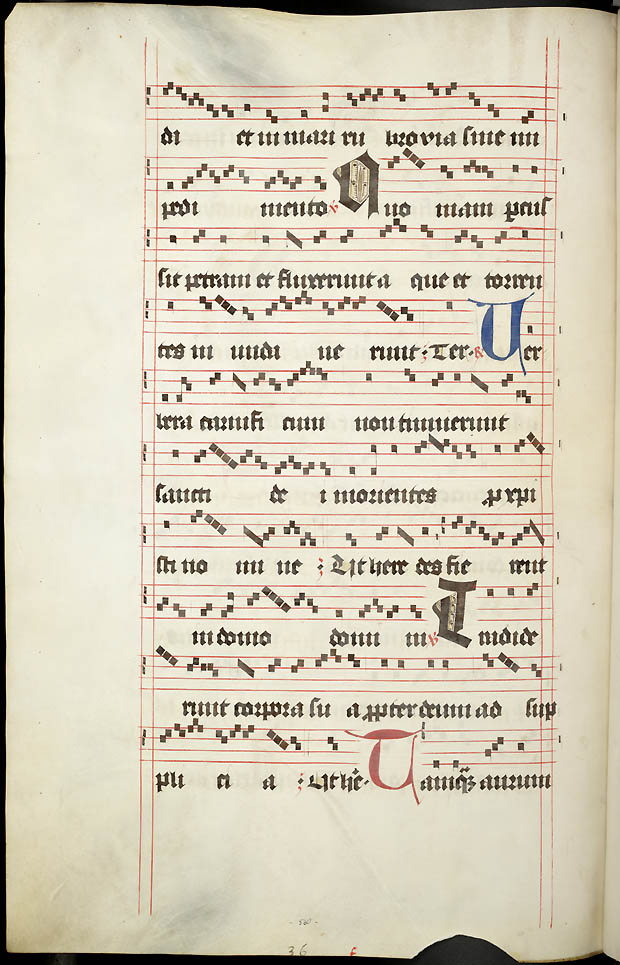 di et in mari ru bro via sine im
pedi mento ℣ Quo niam percus
sit petram et fluxerunt a que et torren
tes in undi ve runt : Ter · ℟ Uer
bera carnifi cum non timuerunt
sancti de i morientes p xpi
sti no mi ne : Ut here des fie rent
in domo domi ni ℣ Tradide
runt corpora su a ppter deum ad sup
pli ci a : Ut he · Tamq3 aurum
36